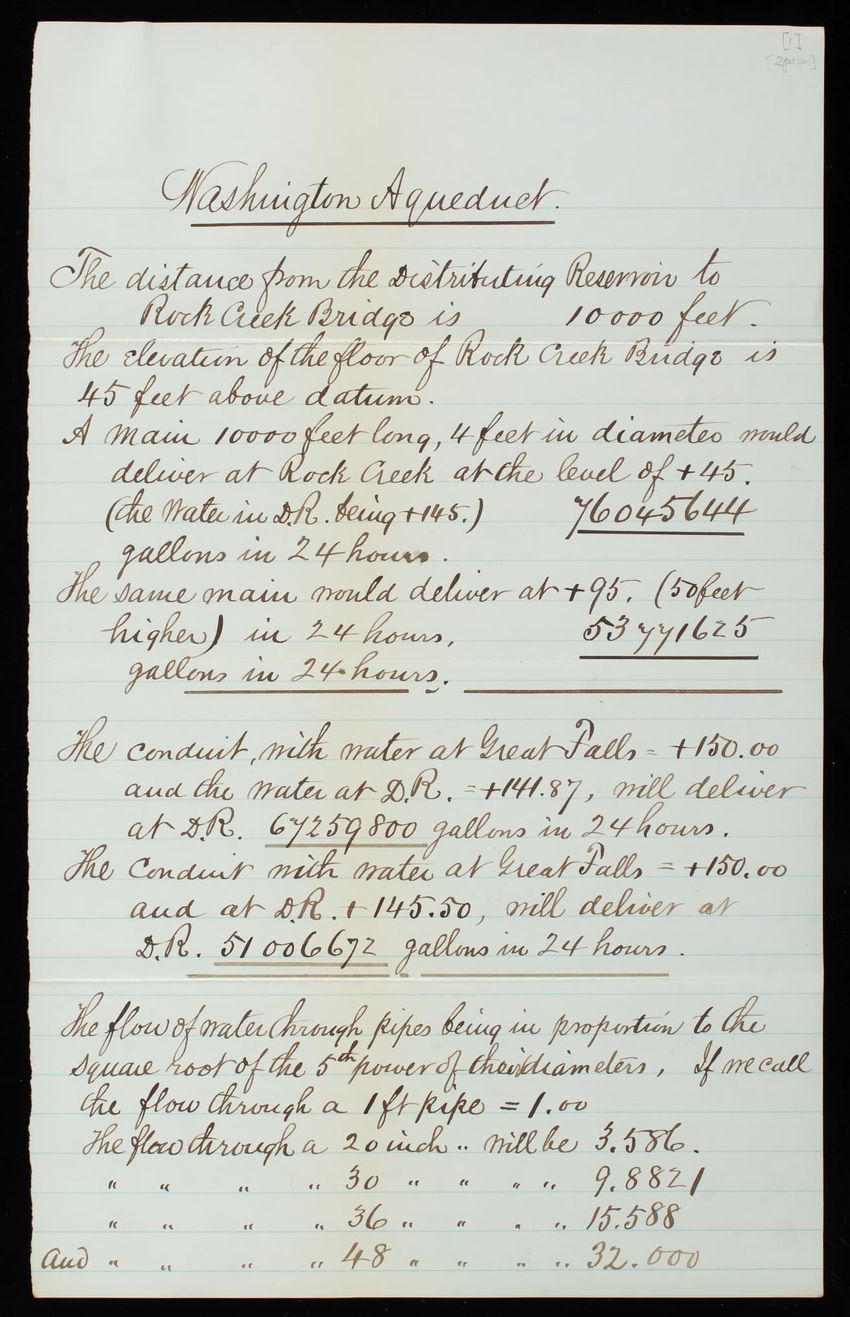 [1]
[2 pages]
Washington Aqueduct.
The distance from the Distributing Reservoir to
Rock Creek Bridge is 10000 feet.
The elevation of the floor of Rock Creek Bridge is
45 feet above datum.
A main 10000 feet long, 4 feet in diameter would
deliver at Rock Creek at the level of +45.
(the Water in D.R. being +145.) 76045644
gallons in 24 hours.
The same main would deliver at +95. (50 feet
higher) in 24 hours, 53771625
gallons in 24 hours.
The conduit, with water at Great Falls = +150.00
and the water at D.R. = +141.87, will deliver
at D.R. 67259800 gallons in 24 hours.
The conduit with water at Great Falls = +150.00
and at D.R. +145.50, will deliver at
D.R. 51006672 gallons in 24 hours.
The flow of water through pipes being in proportion to the
square root of the 5th power of their diameters, If we call
the flow through a 1 ft pipe = 1.00
The flow through a 20 inch " will be 3.586.
" " " " 30 " " " " 9.8821
" " " " 36 " " " " 15.588
and " " " " 48 " " " " 32.000